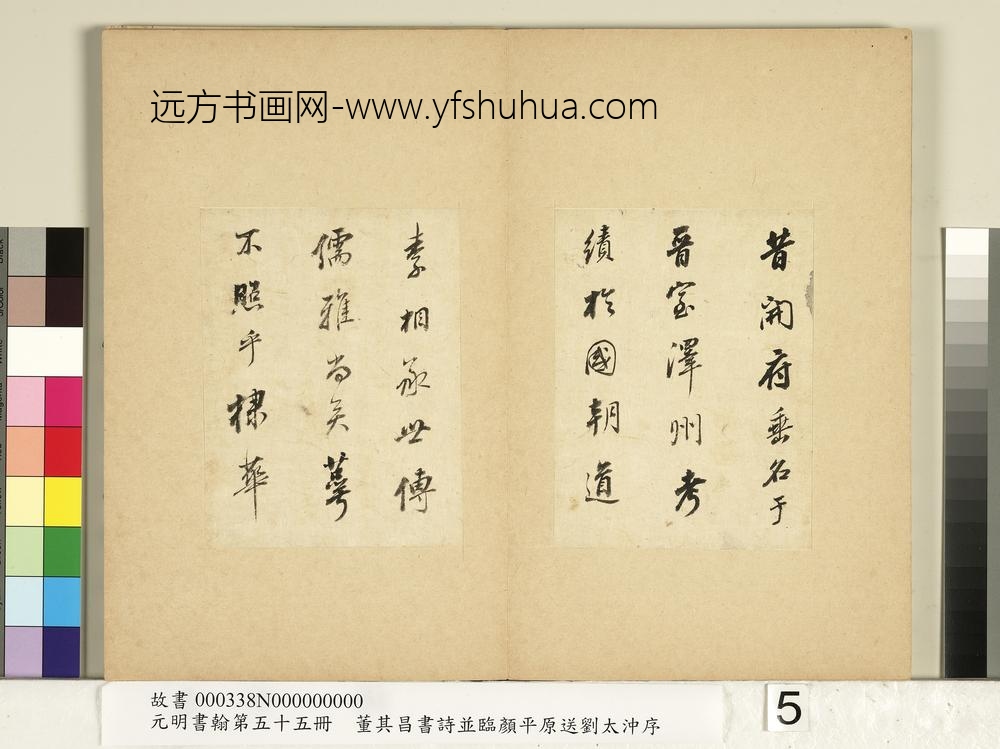 远方书画网-www.yfshuhua.com
昔開府垂名于
晋室澤州考
績於國朝道
素相承世傳
儒雅尚矣蕚
不照乎棣華
故書 000338N000000000
元明書翰第五十五冊 董其昌書詩並臨顏平原送劉太沖序
5